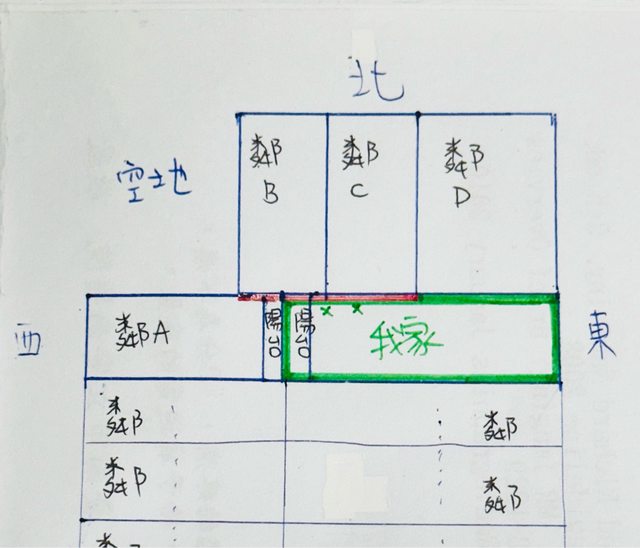 北
空地
鄰B
鄰C
鄰D
西
鄰A
陽台
陽台
x x
我家
東
鄰
鄰
鄰
鄰